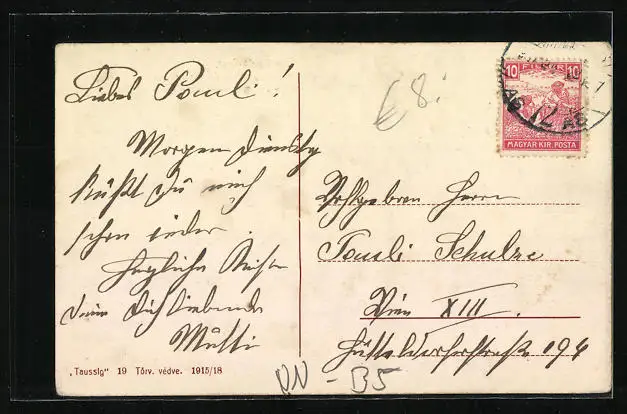 Liebes Pauli!
Morgen Dienstag
küßt Du mich
schon wieder.
Herzliche Küsse
Deine Dich liebende
Mutti
€ 8.
10 FILLÉR 10
MAGYAR KIR. POSTA
Wohlgeboren Herrn
Pauli Schulze
Wien XIII.
Hütteldorferstraße 194
„Taussig" 19 Törv. védve. 1915/18
NN - B5